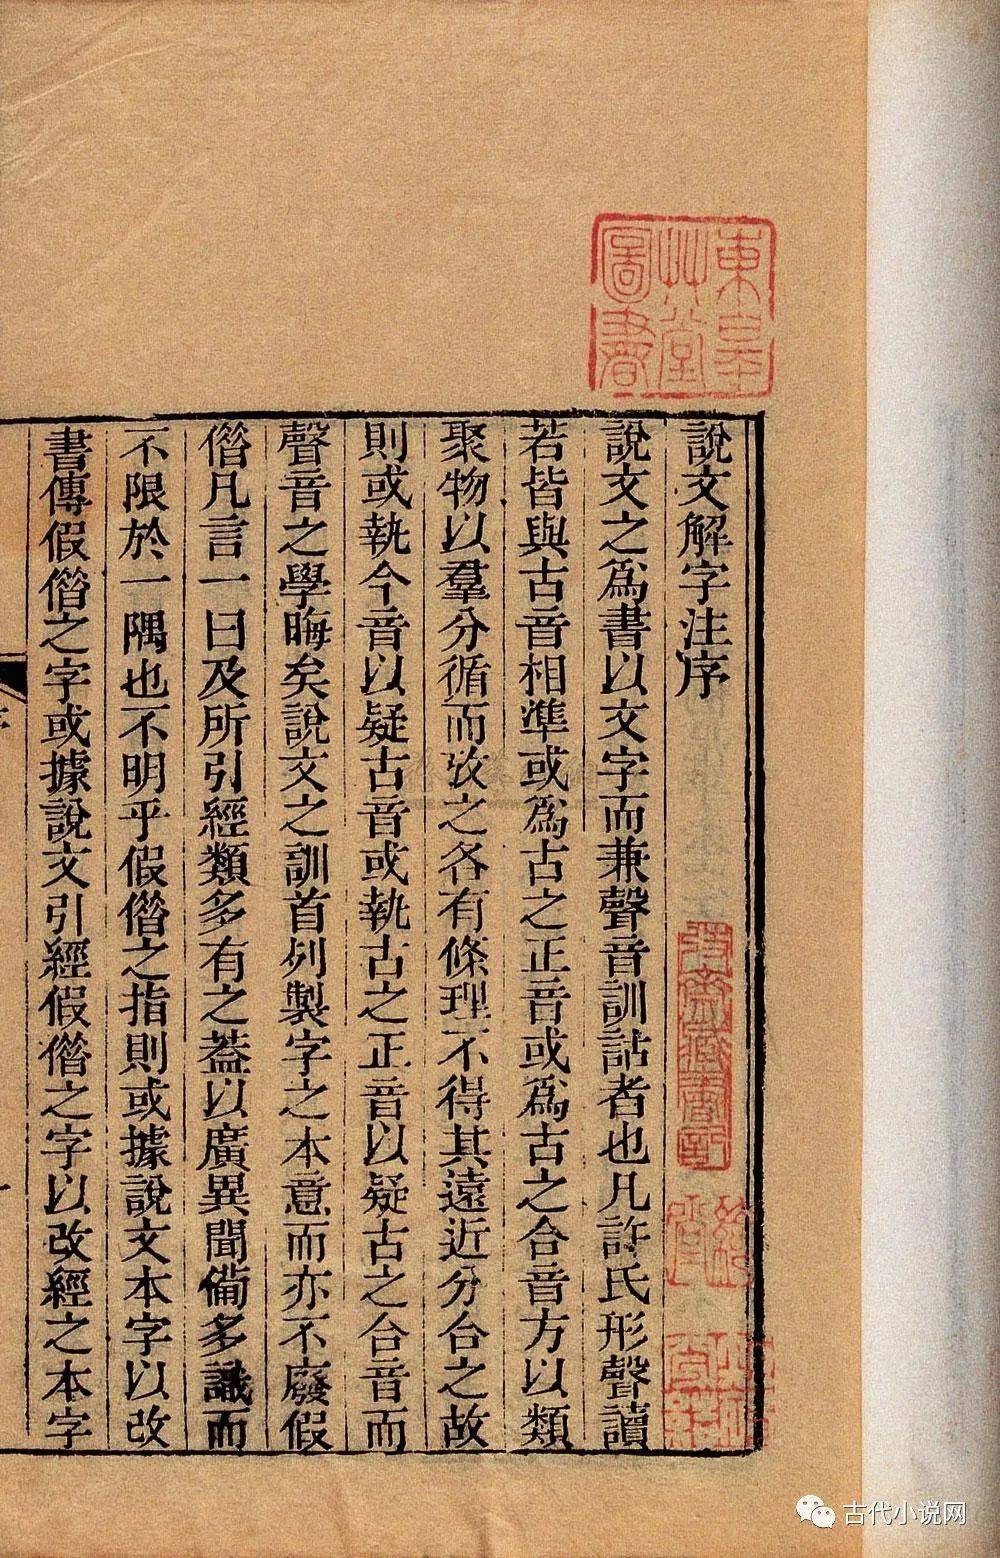 說文解字注序
說文之爲書以文字而兼聲音訓詁者也凡許氏形聲讀
若皆與古音相準或爲古之正音或爲古之合音方以類
聚物以羣分循而攷之各有條理不得其遠近分合之故
則或執今音以疑古音或執古之正音以疑古之合音而
聲音之學晦矣說文之訓首列製字之本意而亦不廢假
僭凡言一曰及所引經類多有之葢以廣異聞備多識而
不限於一隅也不明乎假僭之指則或據說文本字以改
書傳假僭之字或據說文引經假僭之字以改經之本字
東皋
艸堂
圖書
古代小说网